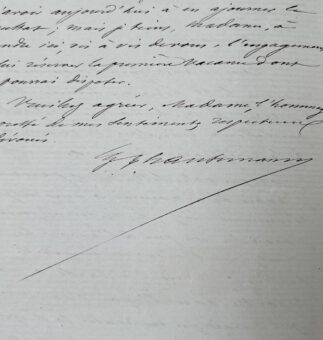 'avoir aujourd'hui à en ajourner le
sultat; mais je tiens, Madame, à
ndre ici vis à vis de vous, l'engagemen
lui réserver la première vacance dont
pourrai disposer.
Veuillez agréer, Madame, l'hommag
de mes sentiments respectueux
dévoués.
G. E. Haussmann